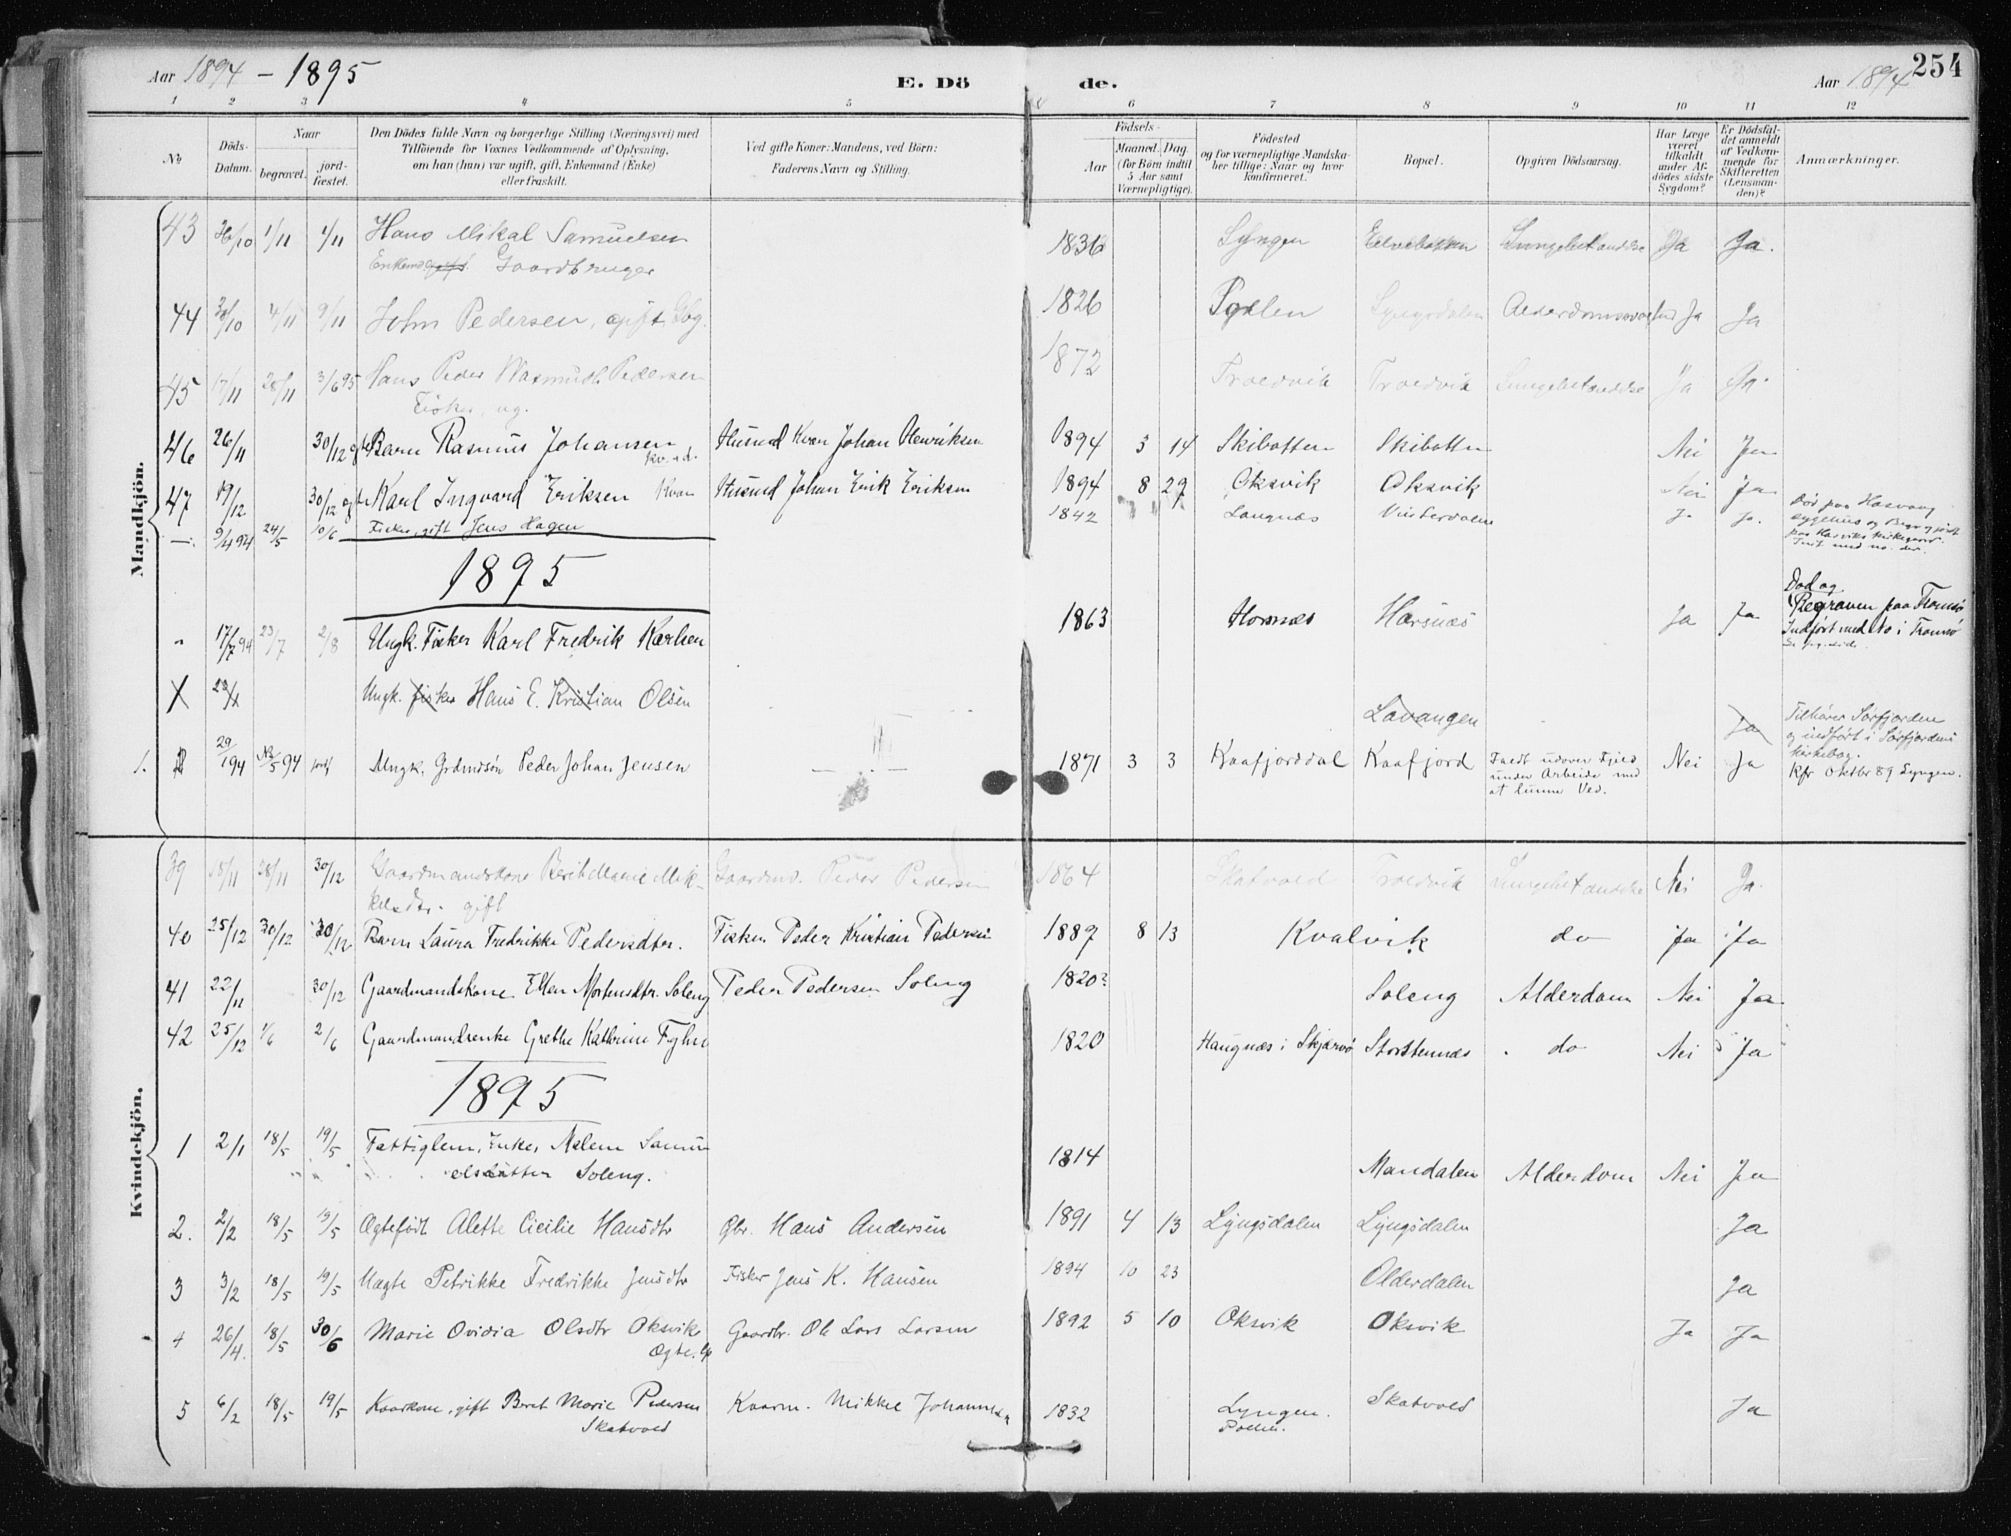 Aar 1894 - 1895
E. Dö
de.
Aar 1894
254
1 2 3 4 5 6 7 8 9 10 11 12
No
Döds-Datum.
Naar
begravet.
jord-fæstet.
Den Dödes fulde Navn og borgerlige Stilling (Næringsvei) med
Tilföiende for Voxnes Vedkommende af Oplysning,
om han (hun) var ugift, gift, Enkemand (Enke)
eller fraskilt.
Ved gifte Koner: Mandens, ved Börn:
Faderens Navn og Stilling.
Födsels-
Aar
Maaned. Dag.
(for Börn indtil
5 Aar samt
Værnepligtige).
Födested
og for værnepligtige Mandska-
ber tillige: Naar og hvor
konfirmeret.
Bopæl.
Opgiven Dödsaarsag.
Har Læge
været
tilkaldt
under Af-
dödes sidste
Sygdom?
Er Dödsfal-
det anmeldt
af Vedkom-
mende for
Skifteretten
(Lensman-
den)?
Anmærkninger.
Mandkjön.
43 1/11 1/11 Hans Mikal Samuelsen 1836 Lyngen Ja Ja.
Gaardbruger
44 30/10 4/11 9/11 John Pedersen, gift 1826 Lyngsdalen Ja Ja
45 17/11 28/11 3/6 95 Hans Peder Wasmuth Pedersen 1872 Troldvik Troldvik Ja Ja
Fisker, ug.
46 26/11 30/12 Barn Rasmus Johansen, Husmd Kvæn Johan Henriksen 1894 3 14 Skibotten Skibotten Nei Ja
47 19/12 30/12 Karl Ingvard Eriksen Kvæn Husmd Johan Erik Eriksen 1894 8 29 Oksvik Oksvik Nei Ja
9/4 94 24/5 10/6 Fisker, gift Jens Hagen 1842 Langnæs Ja Ja
Død paa Hasvaag
sygehus og
paa Hasviks Kirkegaard.
1895
17/7 94 23/7 2/8 Ungk. Fisker Karl Fredrik Karlsen 1863 Hornæs Ja Ja
Død og
Begraven paa Tromsø
Indført med No i Tromsø
X Ungk. fisker Hans E. Kristian Olsen Lavangen Ja
Tilhører Sørfjorden
og indført i Sørfjordens
Kirkebog.
1. 29/1 94 94 Ungk. Grdmdsøn Peder Johan Jensen 1871 3 3 Kaafjorddal Kaafjord Faldt udover Fjeld Nei Ja Kfr Oktbr 89 Lyngen.
under Arbeide med
at lunne Ved.
Kvindekjön.
39 18/11 28/11 30/12 Gaardmandskone Berit Marie Mik- Gaardmd. Peder Pedersen 1864 Skatvold Troldvik Nei Ja.
kelsdtr. gift
40 25/12 30/12 30/12 Barn Laura Fredrikke Pedersdtr. Fisker Peder Kristian Pedersen 1889 8 13 Kvalvik do Ja Ja
41 22/11 30/12 Gaardmandskone Ellen Mortensdtr. Soleng Peder Pedersen Soleng 1820? Soleng Alderdom Nei Ja
42 25/12 1/6 2/6 Gaardmandsenke Grethe Kathrine 1820 Haugnæs i Skjærvø Storstennæs do Nei Ja
1895
1 2/1 18/5 19/5 Fattiglem, Enke, Malene Samu- 1814 Mandalen Alderdom Nei Ja
elsdatter Soleng.
2. 2/2 18/5 19/5 Ægtefødt Alette Cicilie Hansdtr Gbr. Hans Andersen 1891 4 13 Lyngsdalen Lyngsdalen Ja
3 3/2 18/5 19/5 Uægte Petrikke Fredrikke Jensdtr Fisker Jens K. Hansen 1894 10 23 Olderdalen Ja
4 26/4. 18/5 30/6 Marie Ovidia Olsdtr Oksvik Gaardbr. Ole Lars Larsen 1892 5 10 Oksvik Oksvik Ja Ja
Ægte.
5 6/2 18/5 19/5 Kaarkone, gift Beret Marie Pedersen Kaarm. Mikkel Johannesen 1832 Lyngen. Skatvold Ja
Skatvold Pollen.